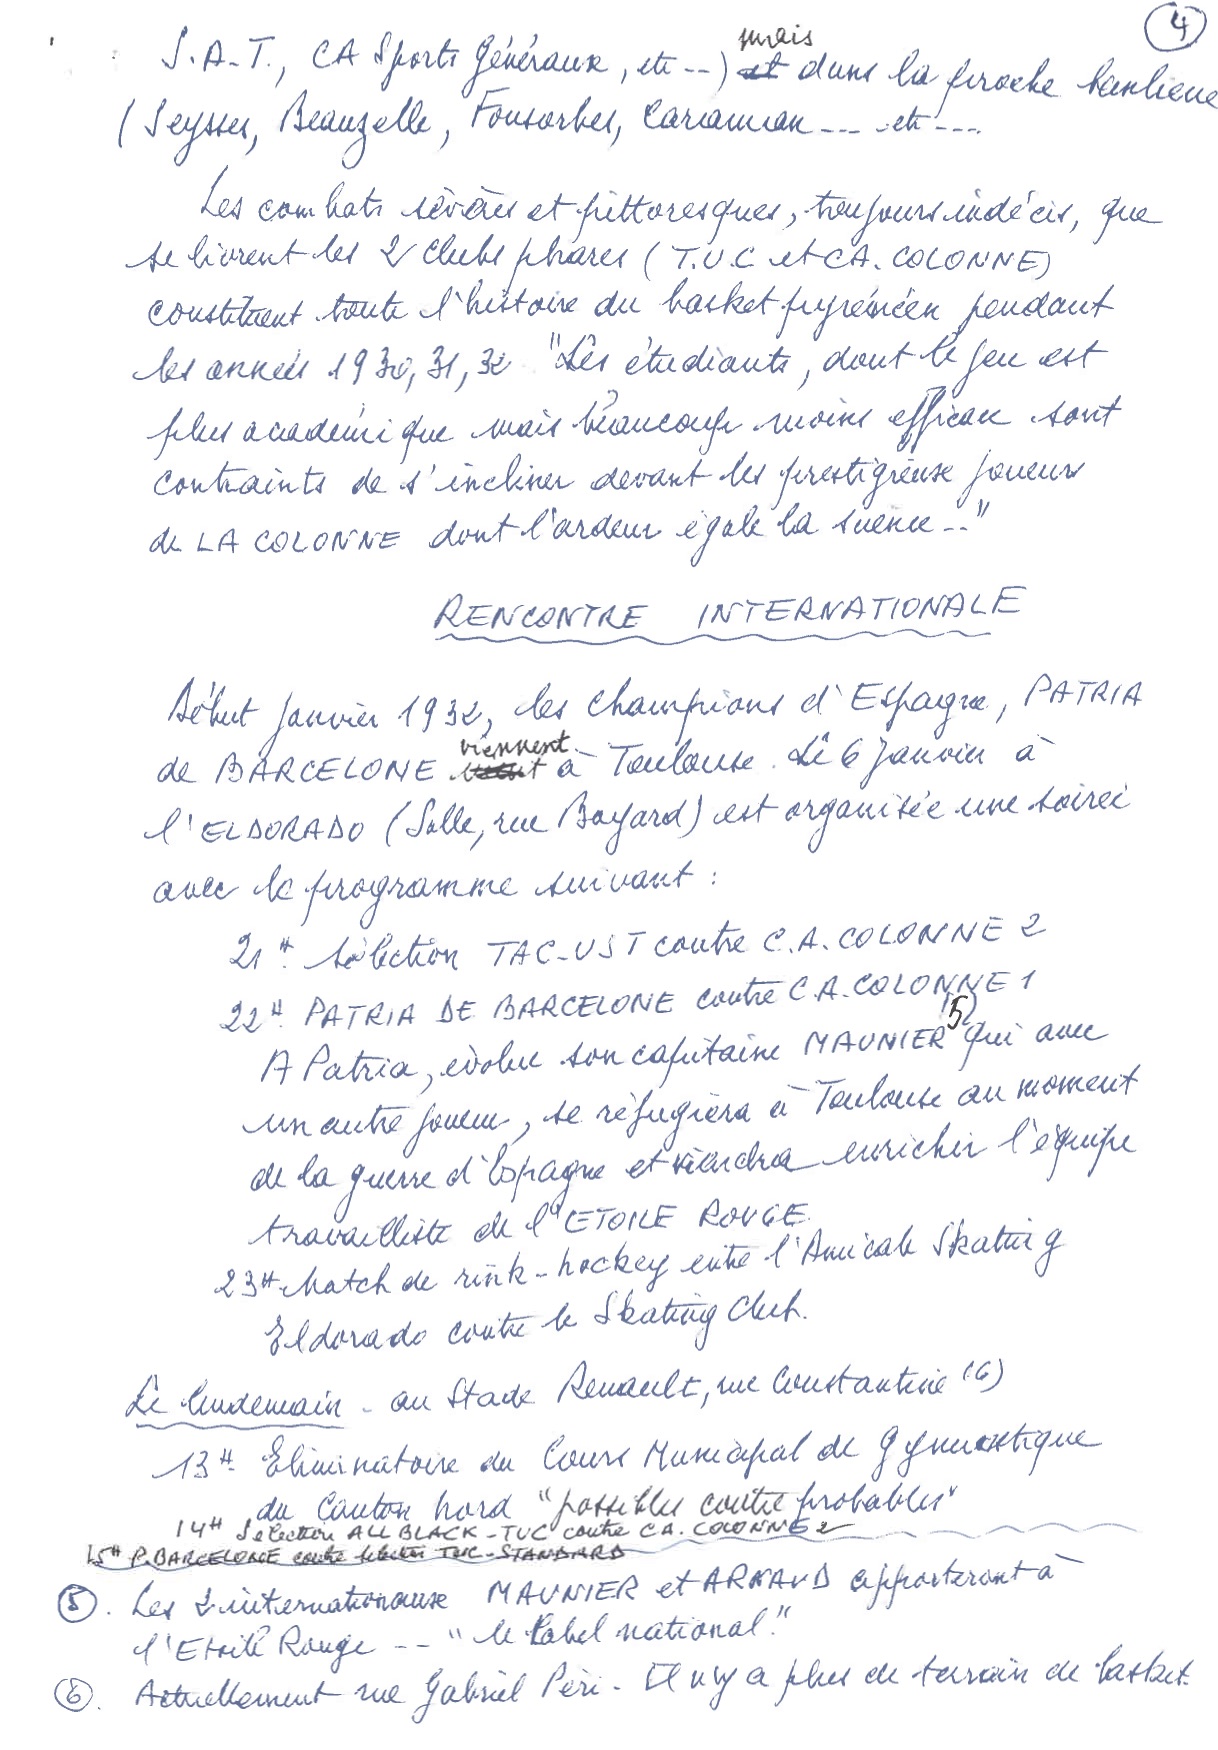 4
S.A.T., CA Sports Généraux, etc --) et mais dans la proche banlieue
(Seysses, Beauzelle, Fonsorbes, Caraman --- etc ---.
Les combats sévères et pittoresques, toujours indécis, que
se livrent les 2 clubs phares (T.U.C et CA. COLONNE)
constituent toute l'histoire du basket pyrénéen pendant
les années 1930, 31, 32 "Les étudiants, dont le jeu est
plus académique mais beaucoup moins efficace sont
contraints de s'incliner devant les prestigieux joueurs
de LA COLONNE dont l'ardeur égale la science --"
RENCONTRE INTERNATIONALE
Début janvier 1932, les champions d'Espagne, PATRIA
de BARCELONE viennent à Toulouse. Le 6 janvier à
l'ELDORADO (Salle, rue Bayard) est organisée une soirée
avec le programme suivant :
21H. Sélection TAC-UST contre C.A. COLONNE 2
22H. PATRIA DE BARCELONE contre C.A. COLONNE 1
A Patria, évolue son capitaine MAUNIER (5) qui avec
un autre joueur, se réfugiera à Toulouse au moment
de la guerre d'Espagne et viendra enrichir l'équipe
travailliste de l'ETOILE ROUGE
23H. Match de rink-hockey entre l'Amicale Skating
Eldorado contre le Skating Club.
Le lendemain - au Stade Renault, rue Constantine (6)
13H. Eliminatoire du Cours Municipal de Gymnastique
du Canton Nord "possibles contre probables"
14H Sélection ALL BLACK-TUC contre CA. COLONNE 2
15H P. BARCELONE contre Sélection TUC-STANDARD
(5). Les 2 internationaux MAUNIER et ARNAUD apporteront à
l'Etoile Rouge -- "le label national."
(6). Actuellement rue Gabriel Péri. Il n'y a plus de terrain de basket.